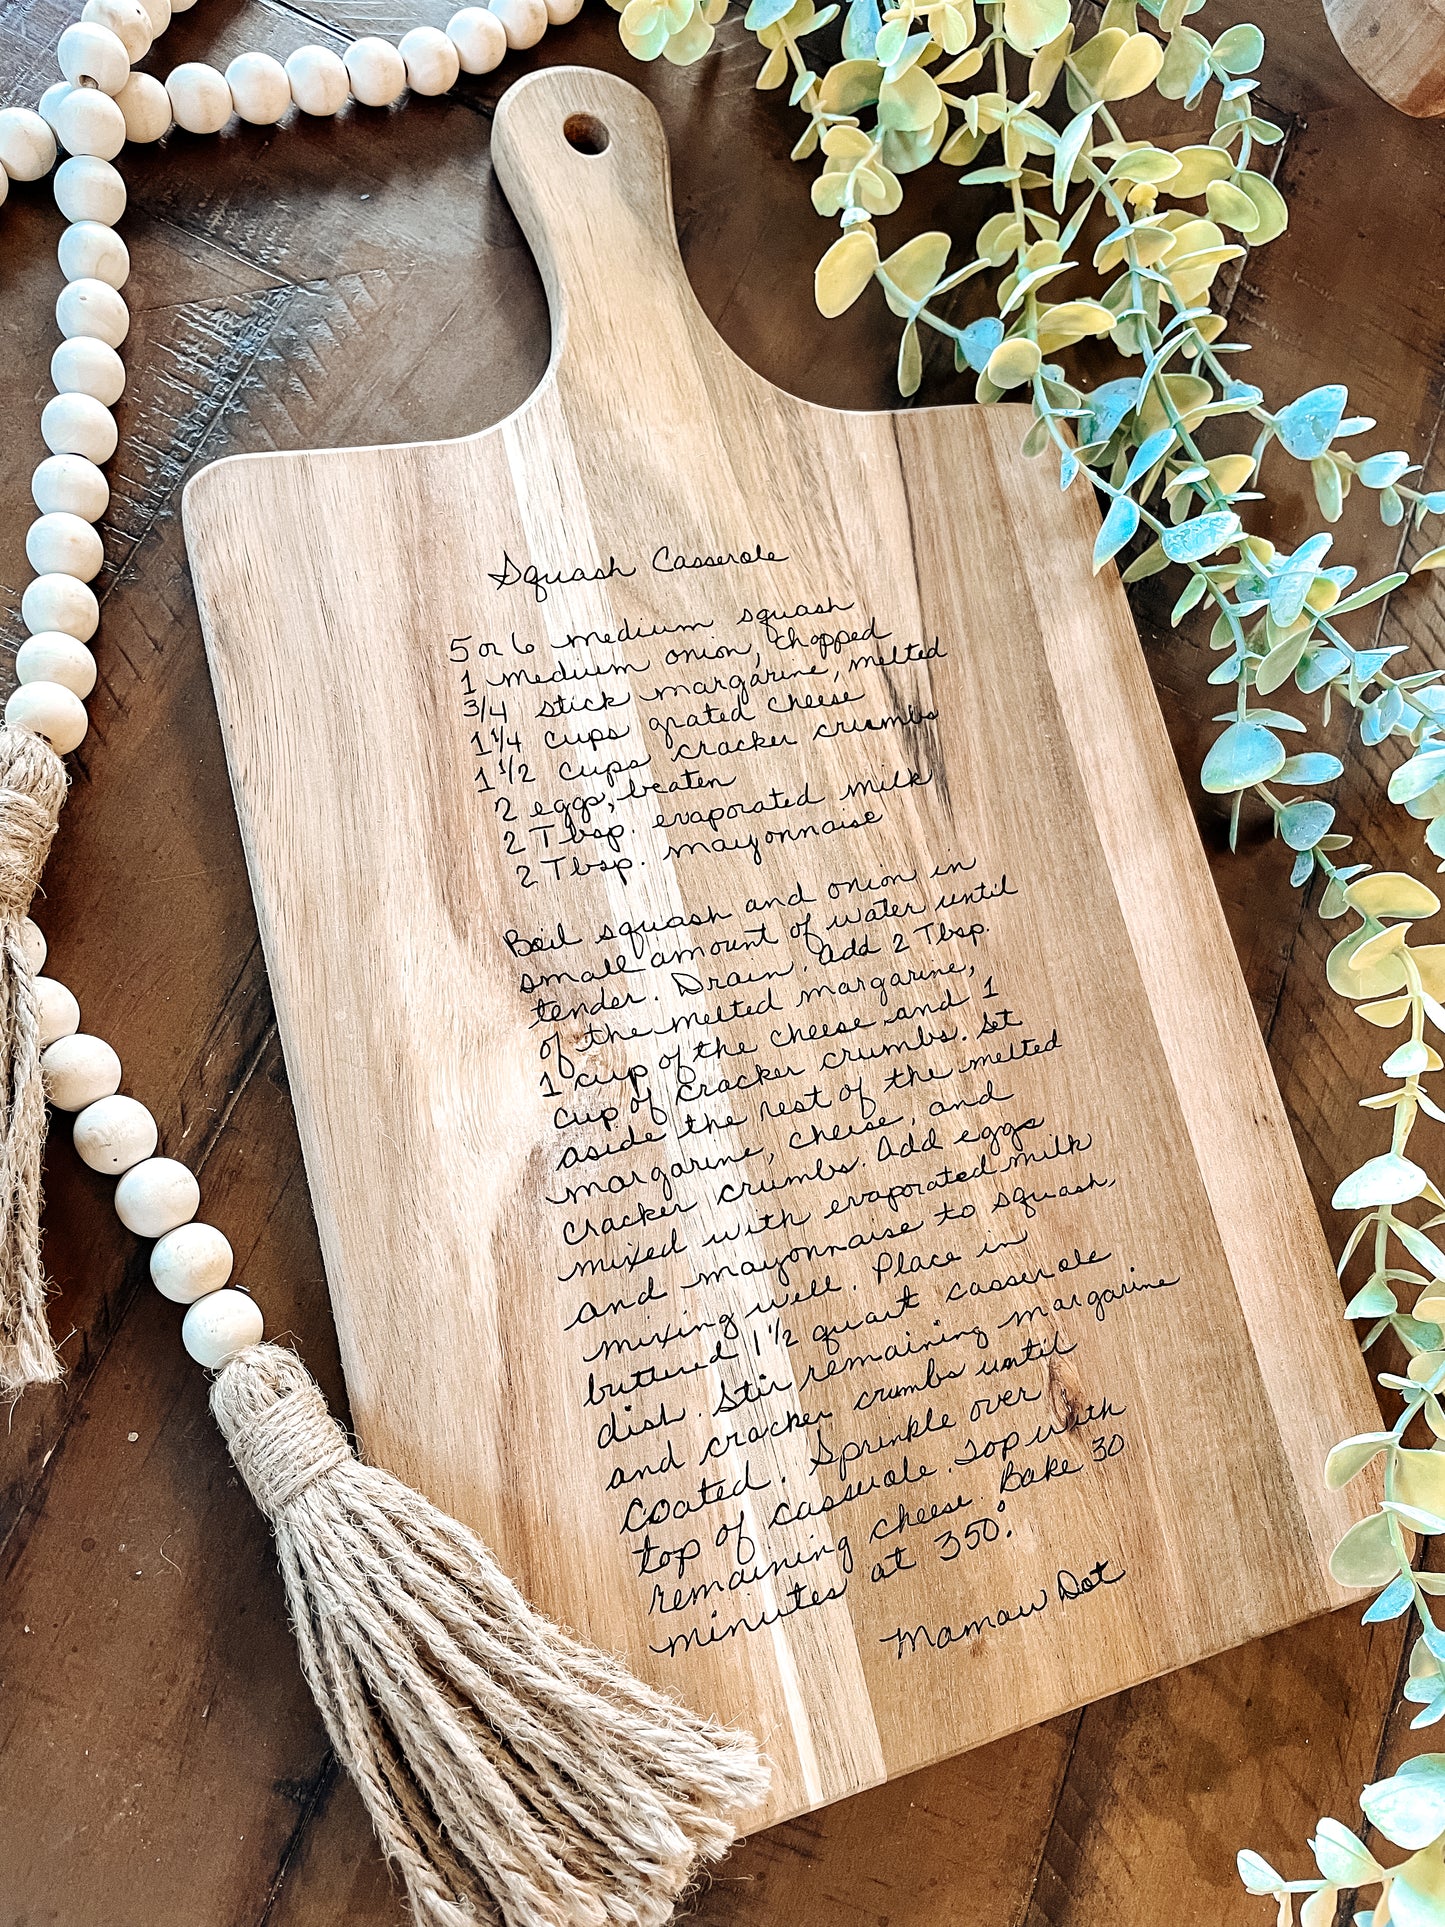 Squash Casserole
5 or 6 medium squash
1 medium onion, chopped
3/4 stick margarine, melted
1 1/4 cups grated cheese
1 1/2 cups cracker crumbs
2 eggs, beaten
2 Tbsp. evaporated milk
2 Tbsp. mayonnaise
Boil squash and onion in
small amount of water until
tender. Drain. Add 2 Tbsp.
of the melted margarine,
1 cup of the cheese and 1
cup of cracker crumbs. Set
aside the rest of the melted
margarine, cheese, and
cracker crumbs. Add eggs
mixed with evaporated milk
and mayonnaise to squash,
mixing well. Place in
buttered 1 1/2 quart casserole
dish. Stir remaining margarine
and cracker crumbs until
coated. Sprinkle over
top of casserole. Top with
remaining cheese. Bake 30
minutes at 350°.
Mamaw Dot